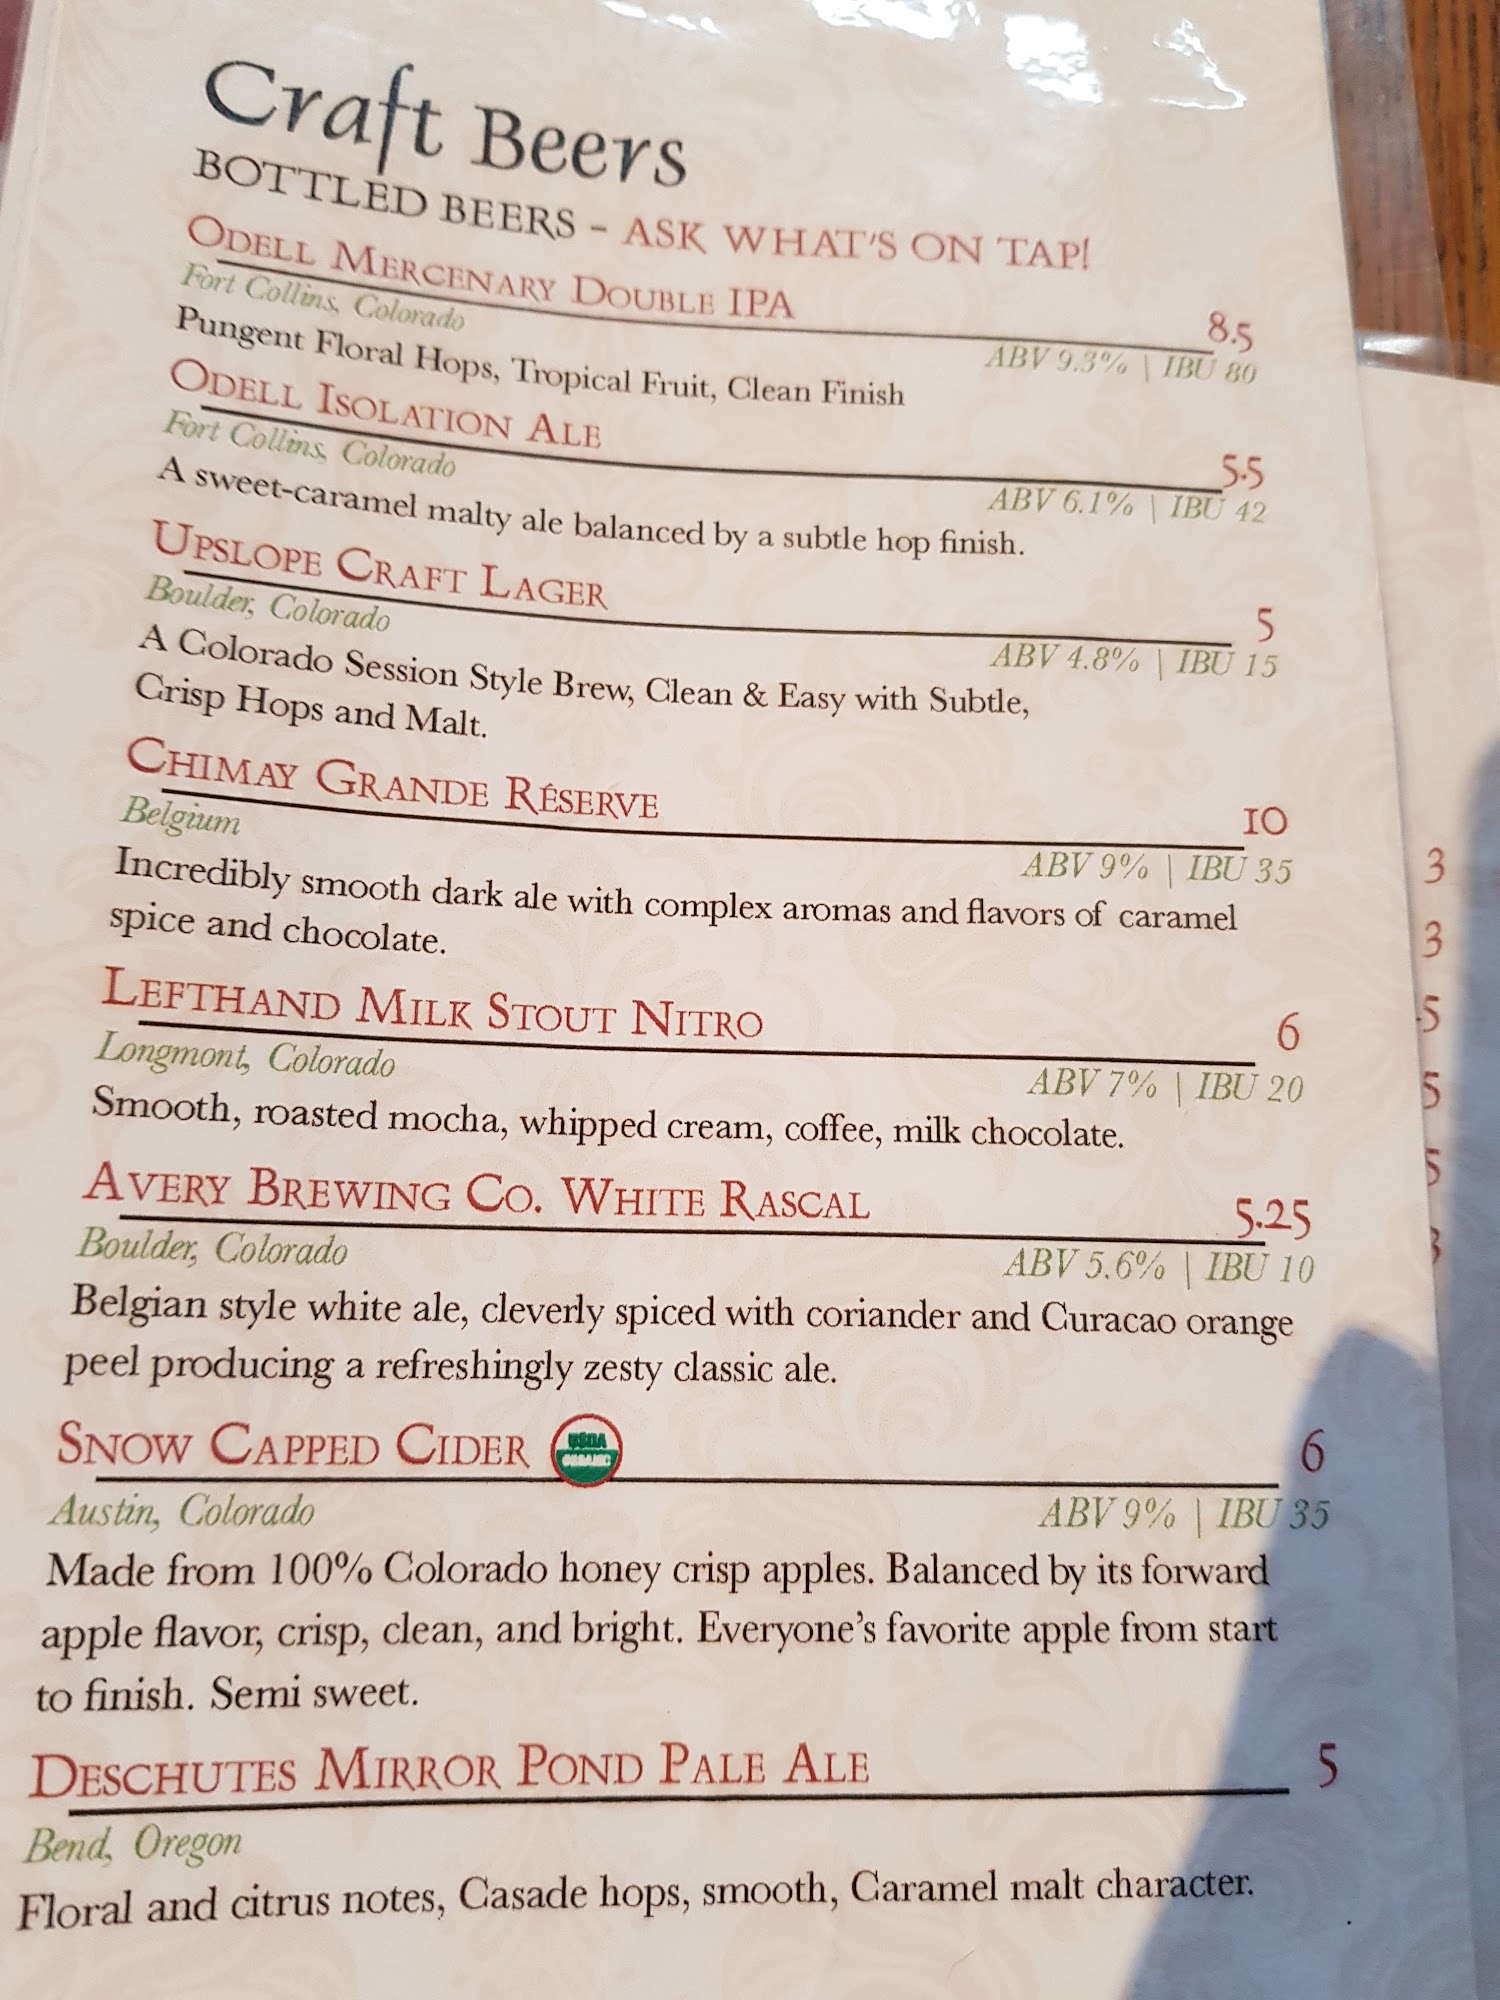 Craft Beers
BOTTLED BEERS - ASK WHAT'S ON TAP!
ODELL MERCENARY DOUBLE IPA 8.5
Fort Collins, Colorado ABV 9.3% | IBU 80
Pungent Floral Hops, Tropical Fruit, Clean Finish
ODELL ISOLATION ALE 5.5
Fort Collins, Colorado ABV 6.1% | IBU 42
A sweet-caramel malty ale balanced by a subtle hop finish.
UPSLOPE CRAFT LAGER 5
Boulder, Colorado ABV 4.8% | IBU 15
A Colorado Session Style Brew, Clean & Easy with Subtle,
Crisp Hops and Malt.
CHIMAY GRANDE RÉSERVE 10
Belgium ABV 9% | IBU 35
Incredibly smooth dark ale with complex aromas and flavors of caramel
spice and chocolate.
LEFTHAND MILK STOUT NITRO 6
Longmont, Colorado ABV 7% | IBU 20
Smooth, roasted mocha, whipped cream, coffee, milk chocolate.
AVERY BREWING CO. WHITE RASCAL 5.25
Boulder, Colorado ABV 5.6% | IBU 10
Belgian style white ale, cleverly spiced with coriander and Curacao orange
peel producing a refreshingly zesty classic ale.
SNOW CAPPED CIDER USDA ORGANIC 6
Austin, Colorado ABV 9% | IBU 35
Made from 100% Colorado honey crisp apples. Balanced by its forward
apple flavor, crisp, clean, and bright. Everyone's favorite apple from start
to finish. Semi sweet.
DESCHUTES MIRROR POND PALE ALE 5
Bend, Oregon
Floral and citrus notes, Casade hops, smooth, Caramel malt character.
3
3
.5
5
5
3